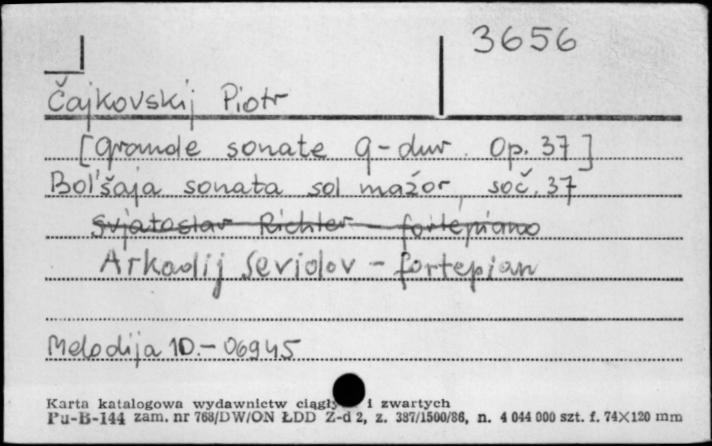 3656
Čajkovskij Piotr
[Grande sonate G-dur. Op. 37]
Bol'šaja sonata sol mažor, soč. 37
Svjatoslav Richter - fortepiano
Arkadij Sevidov - fortepian
Melodija 1D.- 06945
Karta katalogowa wydawnictw i zwartych
Pu-B-144 zam. nr 768/DW/ON ŁDD Z-d 2, z. 387/1500/86, n. 4 044 000 szt. f. 74×120 mm